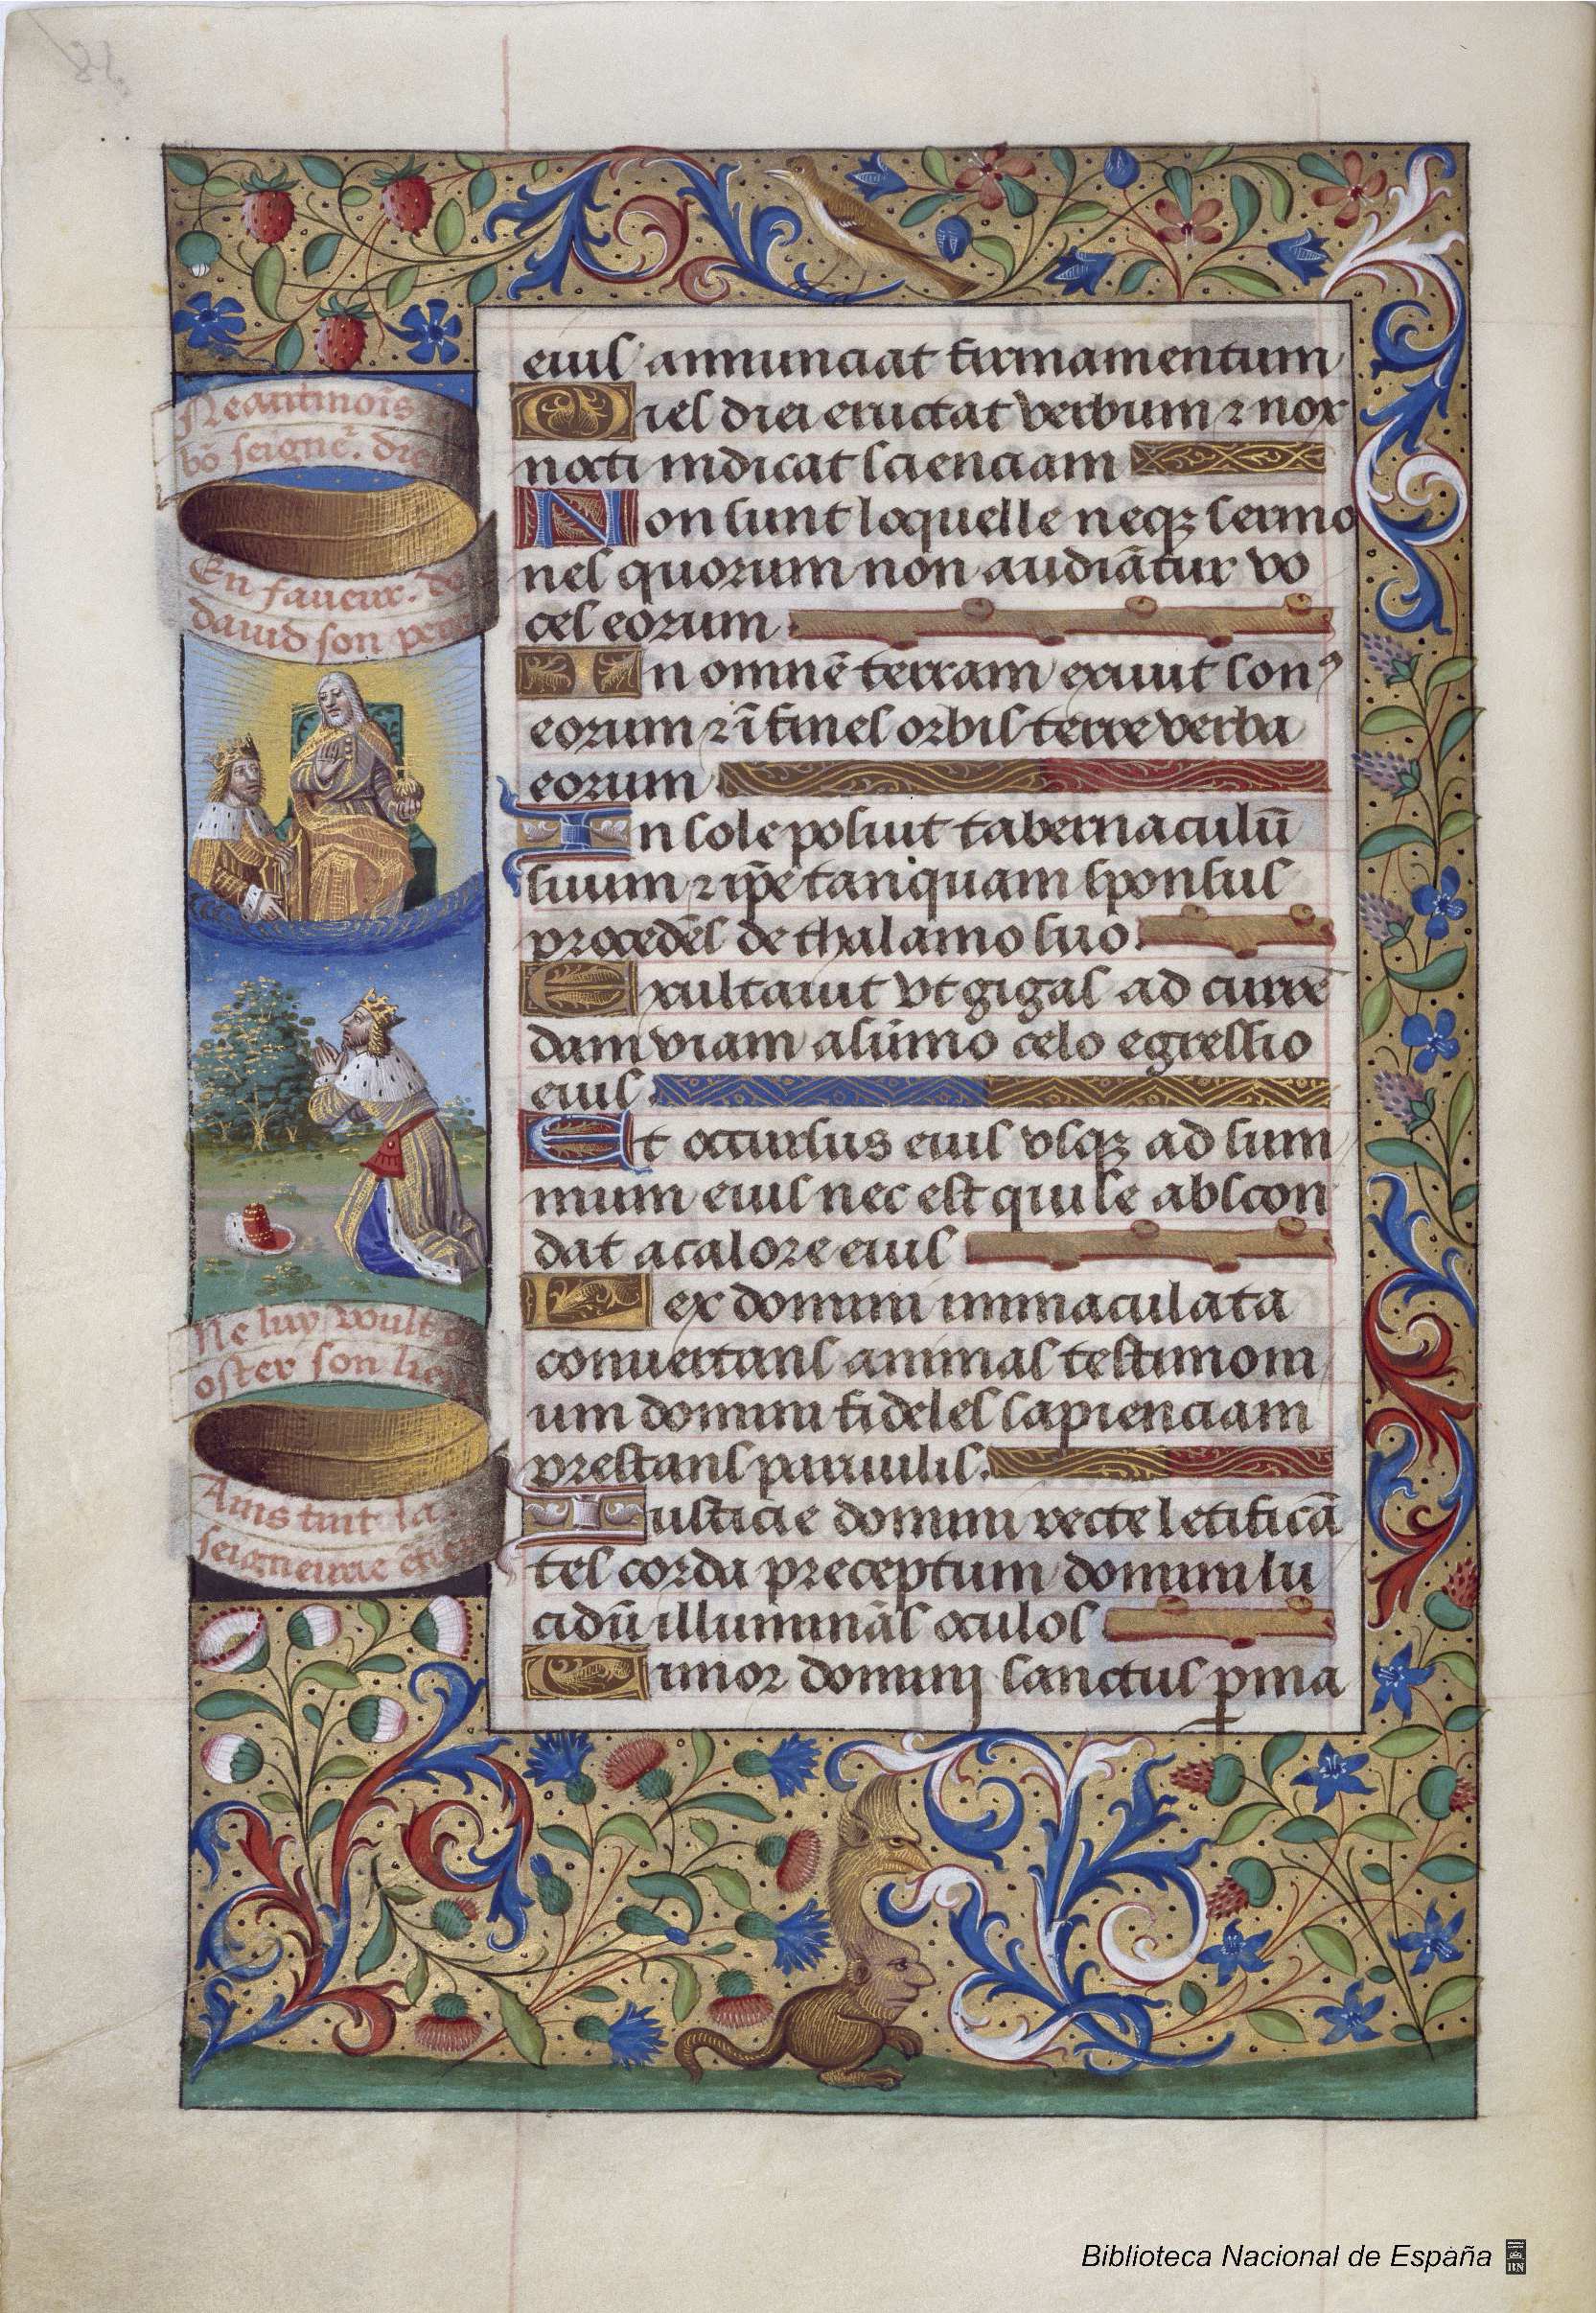 Neantmois
bõ seigne᷑. die
En faueur. de
dauid son pere
Ne luy voult
oster son lieu
Ains tint la
seigneurie
eius annunciat firmamentum
Dies diei eructat verbum ⁊ nox
nocti indicat scienciam
Non sunt loquelle neqꝫ sermo
nes quorum non audiãtur vo
ces eorum
In omnẽ terram exiuit sonꝰ
eorum ⁊ ĩ fines orbis terre verba
eorum
In sole posuit tabernaculũ
suum ⁊ ip̃e tanquam sponsus
procedẽs de thalamo suo.
Exultauit vt gigas ad currẽ
dam viam a sũmo celo egressio
eius.
Et occursus eius vsqꝫ ad sum
mum eius nec est qui se abscon
dat a calore eius
Lex domini immaculata
conuertans animas testimoni
um domini fideles sapienciam
prestans paruulis.
Iusticie domini recte letificã
tes corda preceptum domini lu
cidũ illuminãs oculos
Timor dominj sanctus ꝑma
Biblioteca Nacional de España
BN